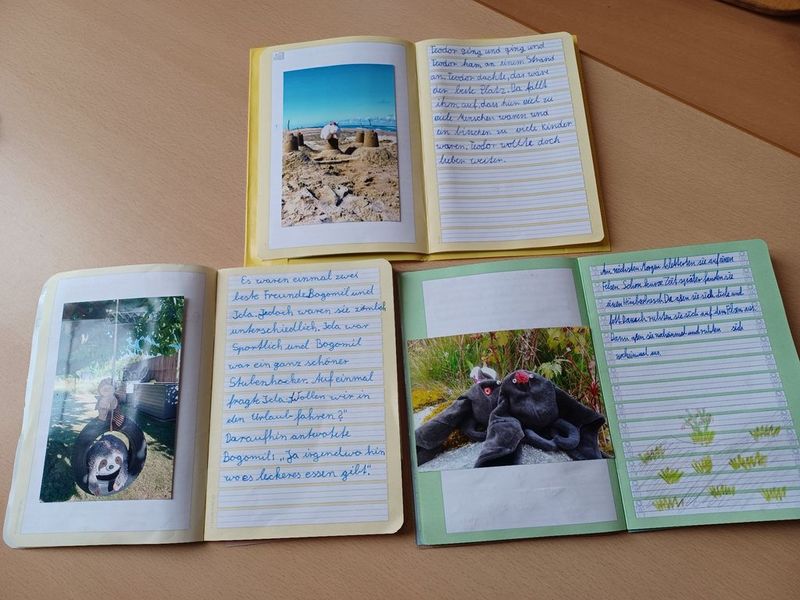 Teodor ging und ging und
Teodor kam an einem Strand
an. Teodor dachte, das wäre
der beste Platz. Da fällt
ihm auf, dass hier viel zu
viele Menschen waren und
ein bisschen zu viele Kinder
waren. Teodor wollte doch
lieber weiter.
Es waren einmal zwei
beste Freunde Bogomil und
Jola. Jedoch waren sie ziemlich
unterschiedlich. Jola war
Sportlich und Bogomil
war ein ganz schöner
Stubenhocker. Auf einmal
fragte Jola „Wollen wir in
den Urlaub fahren?"
Daraufhin antwotete
Bogomil: „Ja irgendwo hin
wo es leckeres essen gibt".
Am nächsten Morgen kletterten sie auf einen
Felsen. Schon kurze Zeit später fanden sie
einen Himberbusch. Da aßen sie sich dick und
fett. Danach ruhten sie sich auf dem Felsen aus.
Dann aßen sie nocheinmal und ruhten sich
nocheinmal aus.